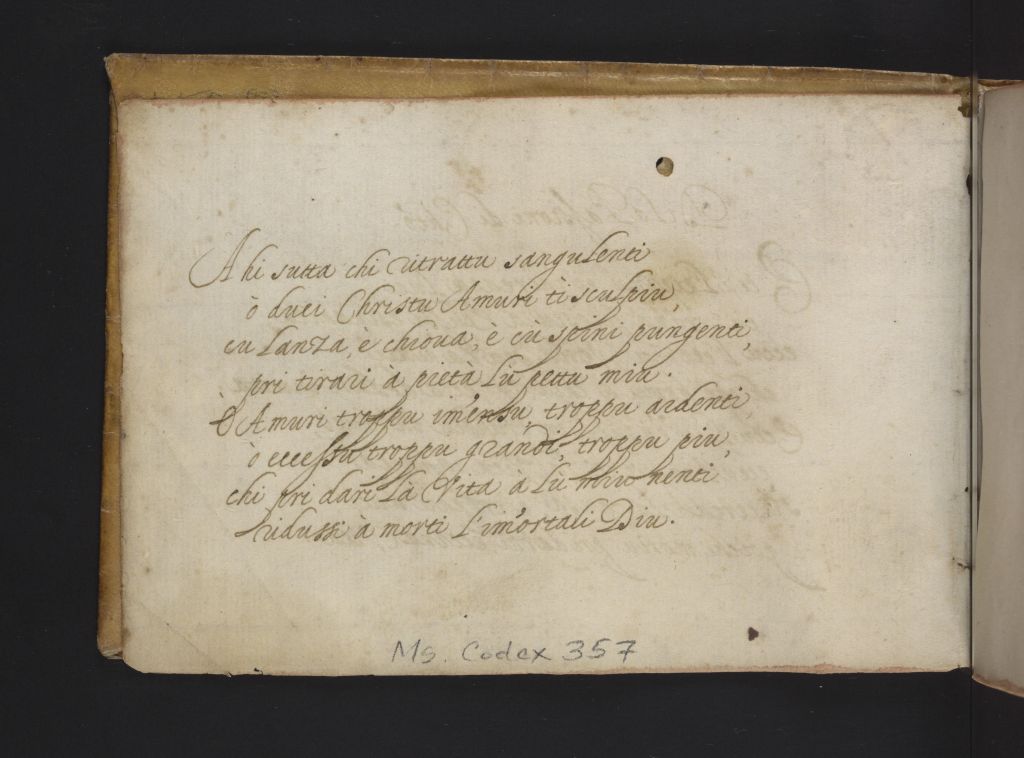 Ahi sutta chi ritrattu sangulenti
ò duci Christu Amuri ti sculpiu,
cu Lanza, è chiova, è cù spini pungenti,
pri tirari à pietà lù pettu miu.
ò Amuri troppu im̃ensu, troppu ardenti,
ò eccessu troppu grandi, troppu piu,
chi pri dari là Vita à lù miu nenti
ridussi à morti l'im̃ortali Diu.
Ms. Codex 357